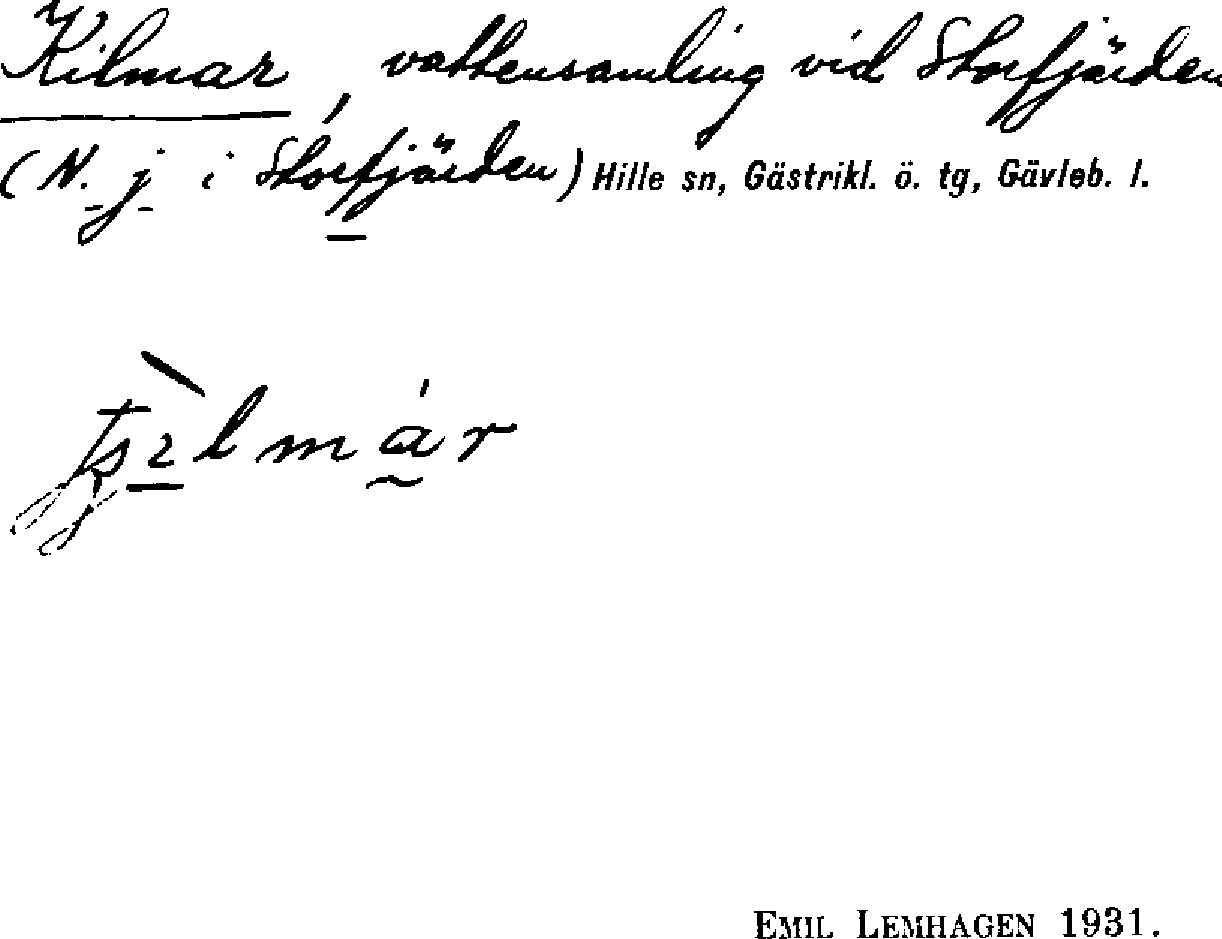 Kilmar, vattensamling vid Storfjärden
(N. j i Storfjärden) Hille sn, Gästrikl. ö. tg, Gävleb. l.
EMIL LEMHAGEN 1931.